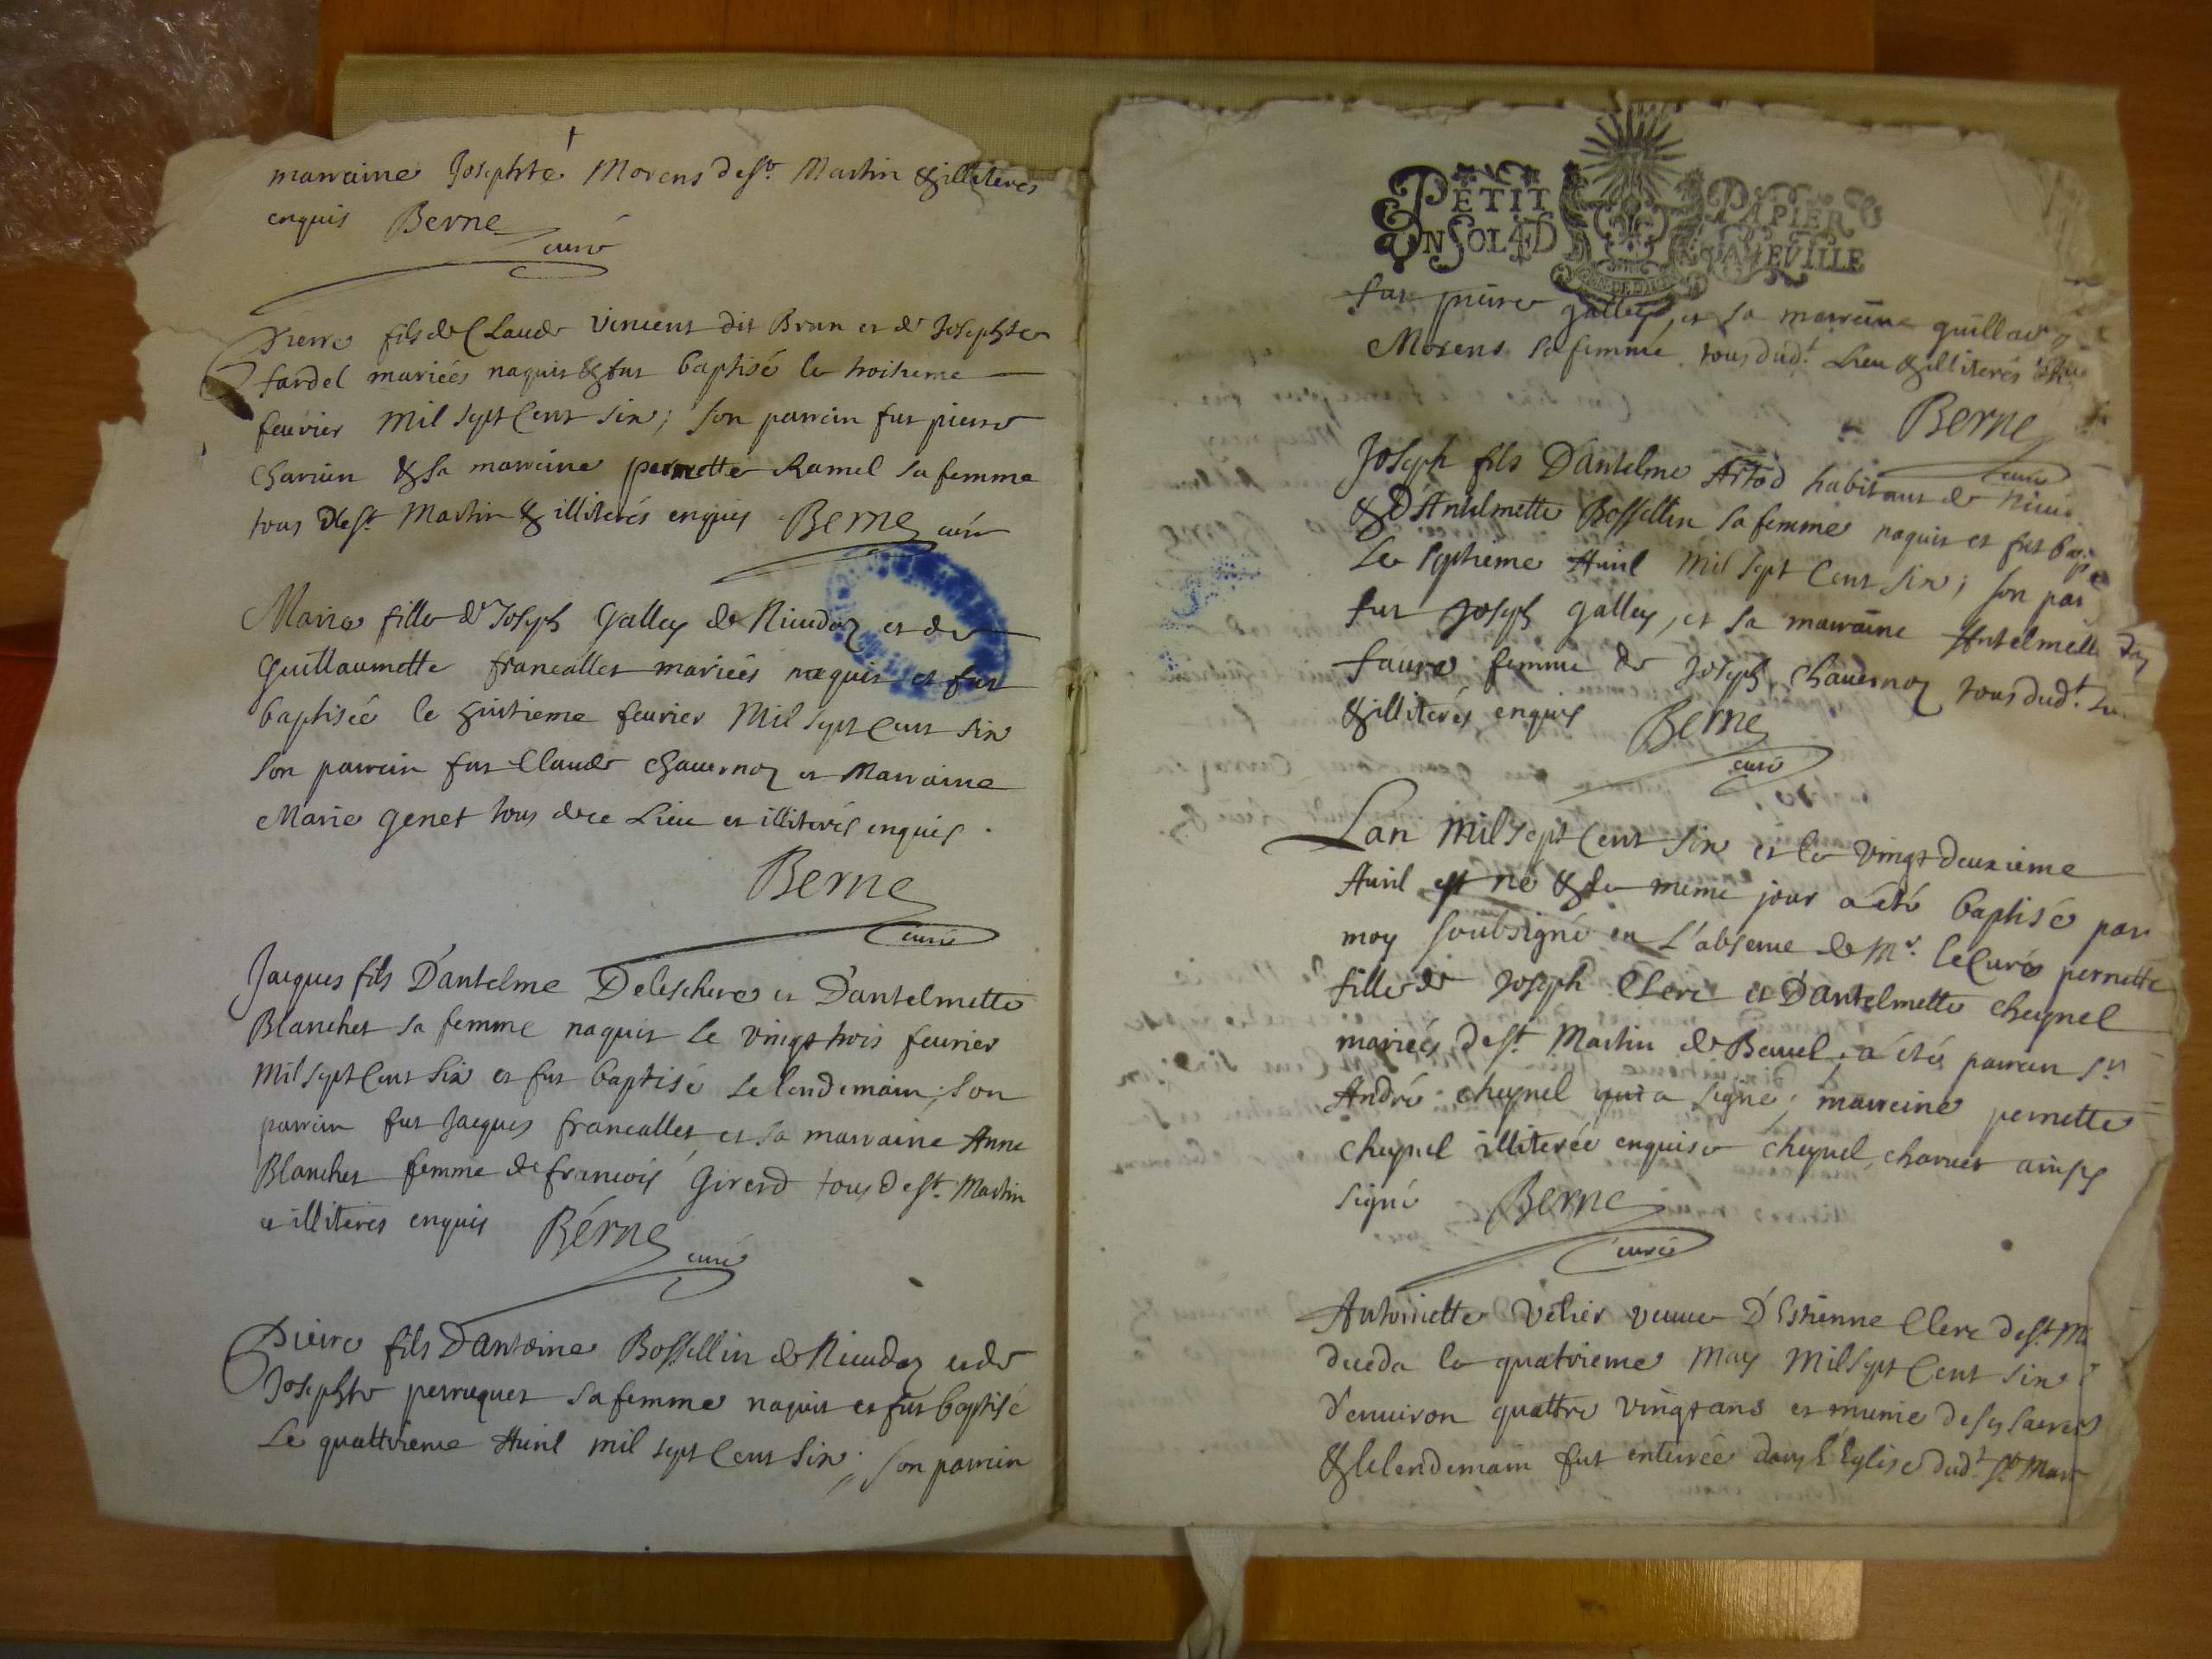 marraine Josephte Morens de St. Martin & illiterés
enquis Berne
curé
Pierre fils de Claude Vincent dit Brun et de Josephte
fardel mariées naquit & fut baptisé le troisieme
feuvrier mil sept Cent six; son parrain fut pierre
& sa marraine pernette Ramel sa femme
tous de St. Martin & illiterés enquis Berne curé
Marie fille de Joseph Galley de Niudaz et de
Guillaumette francallet mariées naquit et fut
baptisée le huitieme feuvrier Mil sept Cent six
son parrain fut Claude chavernoz et Marraine
Marie Genet tous de ce Lieu et illiterés enquis.
Berne
curé
Jacques fils D'antelme Deleschere et D'antelmette
Blanchet sa femme naquit le vingt trois feuvrier
Mil sept Cent six et fut baptisé le lendemain; son
parrain fut Jacques francallet et sa marraine Anne
Blanchet femme de francois Girerd tous de St. Martin
et illiterés enquis Berne curé
Pierre fils D'antoine Bossellin de Niudaz et de
Josephte perruquet sa femme naquit et fut baptisé
Le quattrieme Avril mil sept Cent six; son parrain
PETIT PAPIER
UN SOL 4 D LA FEUILLE
fut pierre galley, et sa marraine
Morens sa femme tous dudt. Lieu & illiterés
Berne
curé
Joseph fils D'antelme Artod habitant de
& D'Antelmette Bossellin sa femme naquit et fut bap
Le septieme Avril Mil sept Cent six; son par
fut Joseph galley, et sa marraine Antelmette
faure femme de Joseph Chavernoz tous dudt.
& illiterés enquis Berne
curé
Lan Mil sept Cent six et le vingt deuxieme
Avril est né & le meme jour a été baptisé par
moy soubsigné en L'absence de Mr. le Curé pernette
fille de Joseph Clerc et D'antelmette cheynel
mariées de St. Martin de Bavel, a été parrain Sr.
André cheynel qui a signé; marraine pernette
cheynel illiterée enquise cheynel, charvet ainsy
signé Berne
curé
Antoinette Velier veuve D'Estienne Clerc de St. M
deceda le quatrieme May Mil sept Cent six
d'environ quattre vingt ans et munie de ses sacrem
& le lendemain fut enterrée dans L'Eglise dudt. St. Mar